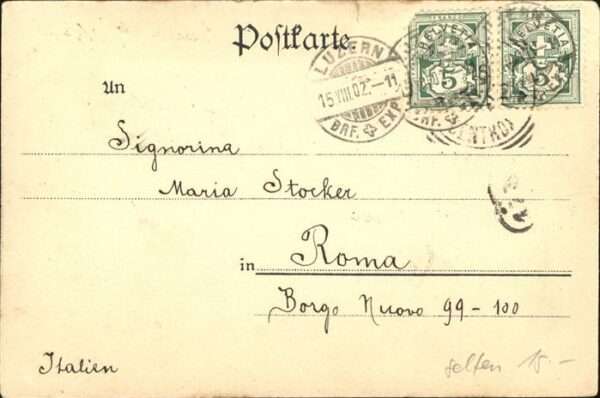 Postkarte
LUZERN
15.VIII.02.-11
BRF. EXP.
HELVETIA
5
HELVETIA
5
An
Signorina
Maria Stocker
in Roma
Borgo Nuovo 99-100
Italien
selten 15.-